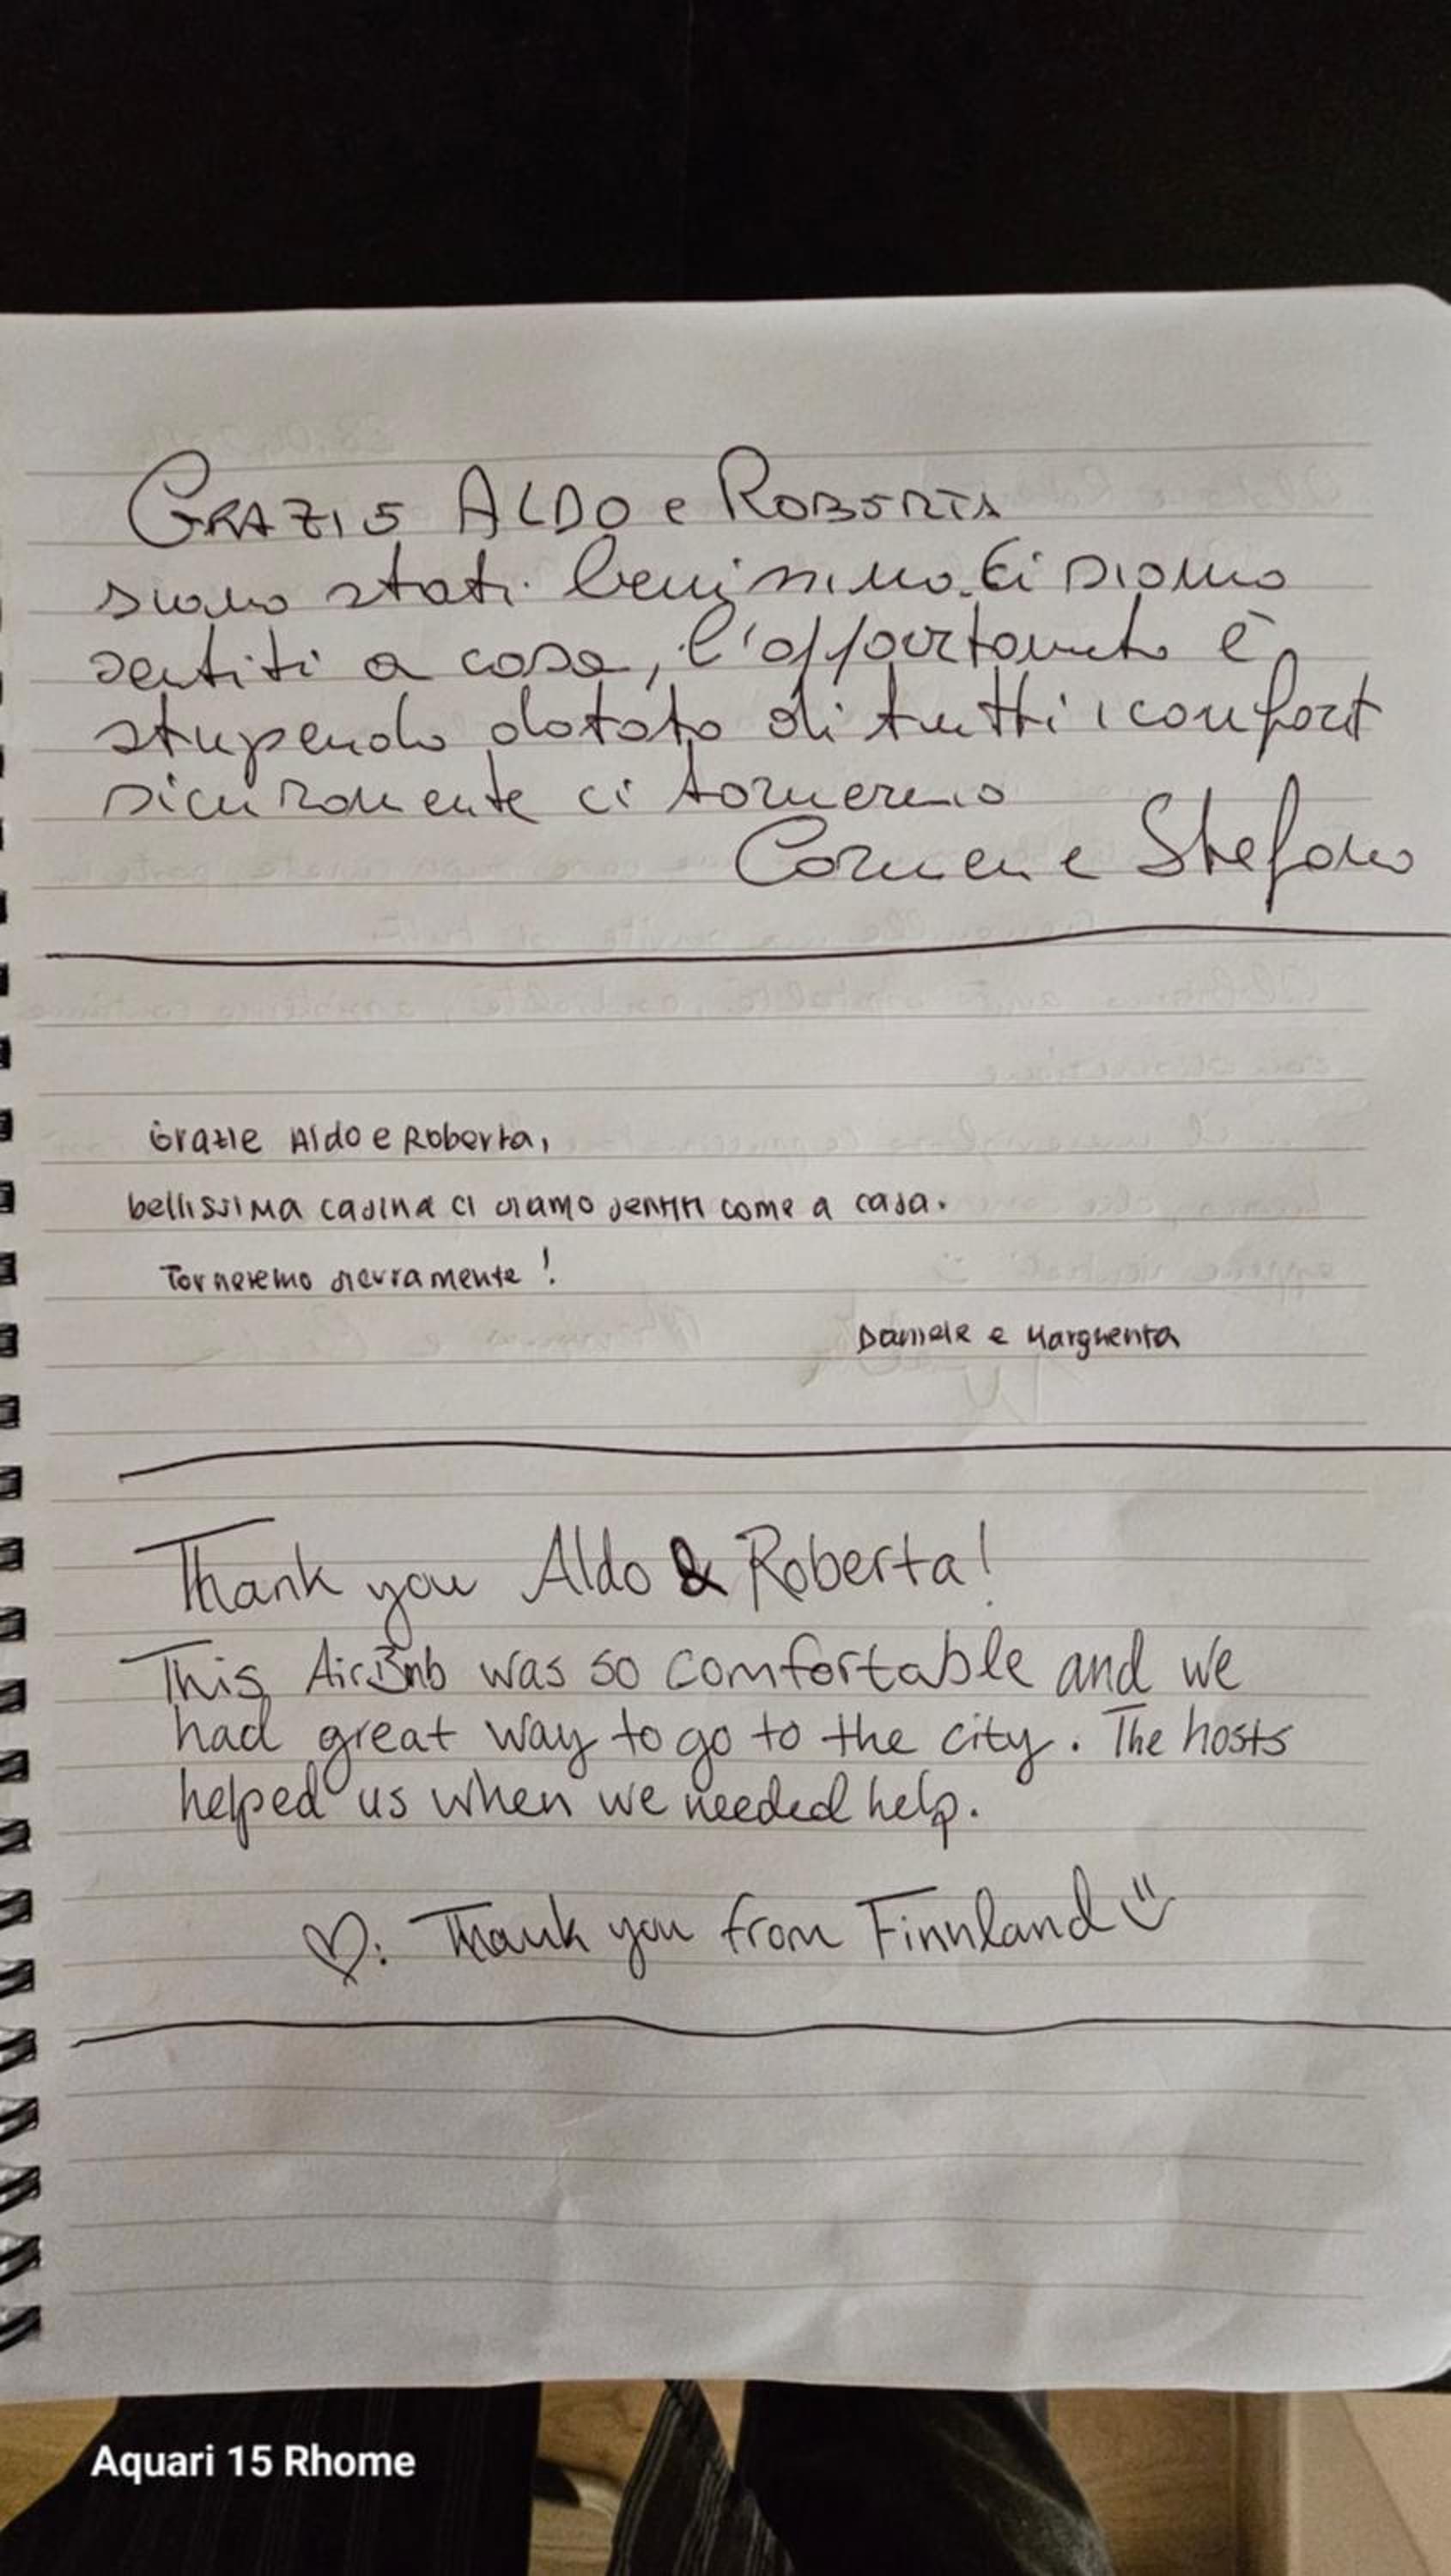 GRAZIE ALDO e ROBERTA
siamo stati benissimo. Ci siamo
sentiti a casa, l'appartamento è
stupendo dotato di tutti i confort
sicuramente ci torneremo
Carmen e Stefano
Grazie Aldo e Roberta,
bellissima casina ci siamo sentiti come a casa.
Torneremo sicuramente!
Daniele e Margherita
Thank you Aldo & Roberta!
This AirBnb was so comfortable and we
had great way to go to the city. The hosts
helped us when we needed help.
♡: Thank you from Finnland
Aquari 15 Rhome